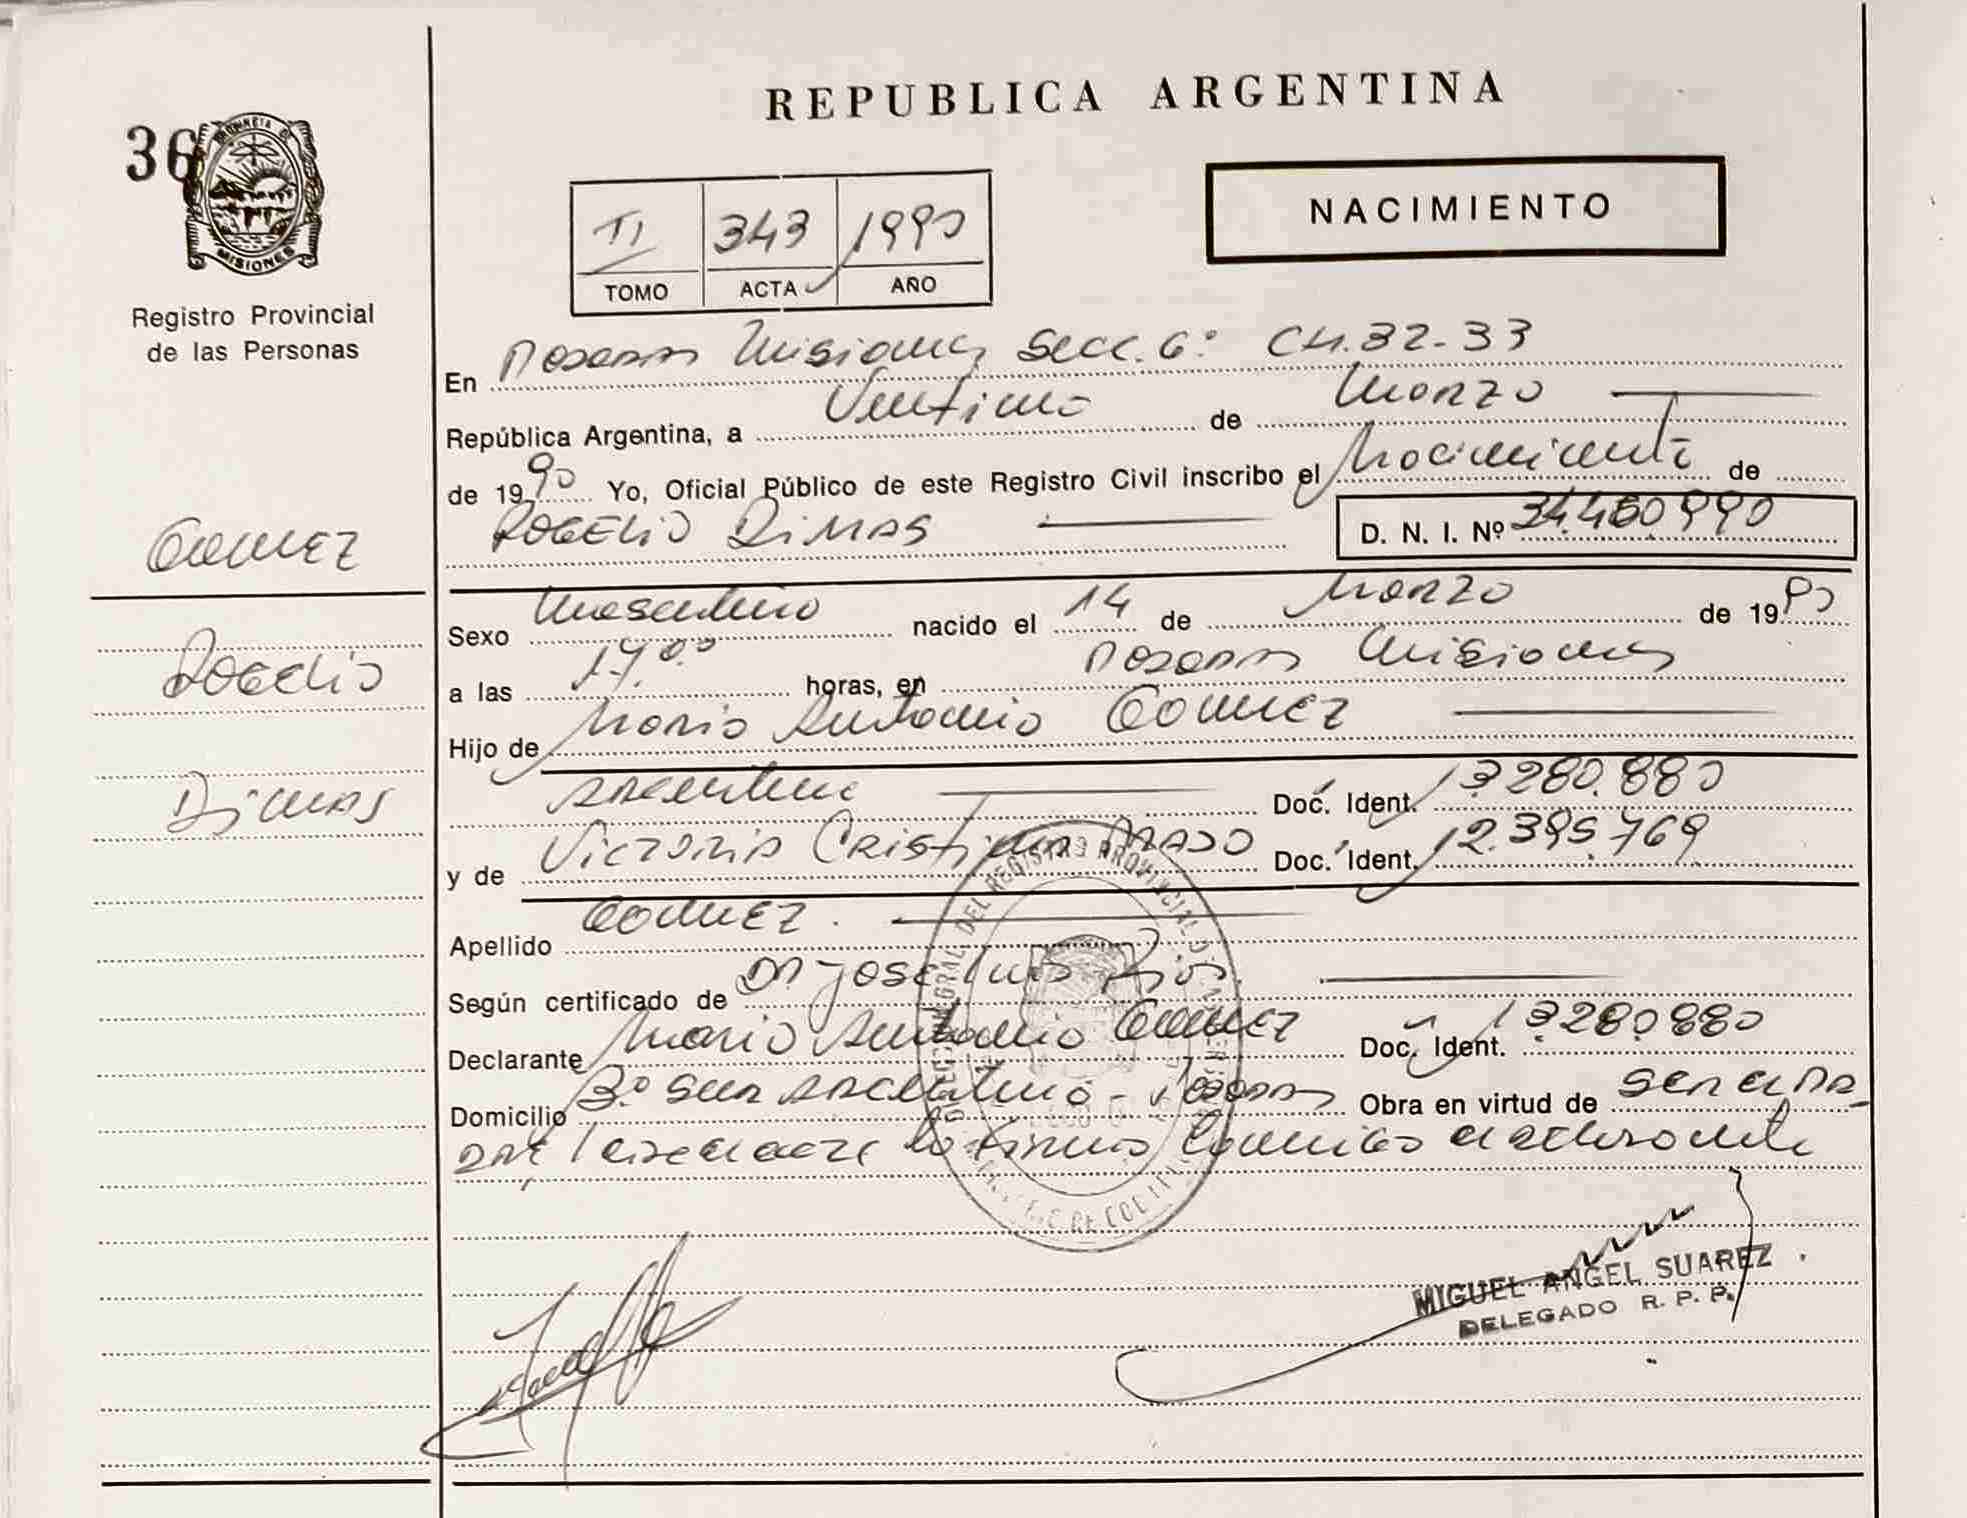 REPUBLICA ARGENTINA
36
PROVINCIA DE
MISIONES
Registro Provincial
de las Personas
NACIMIENTO
II 343 1990
TOMO ACTA AÑO
En Posadas Misiones Secc. 6° CH. 32-33
República Argentina, a Veintiuno de Marzo
de 1990 Yo, Oficial Público de este Registro Civil inscribo el Nacimiento de
ROGELIO DIMAS D. N. I. Nº 34.480990
GOMEZ
Sexo Masculino nacido el 14 de Marzo de 1990
Rogelio
a las 17.00 horas, en Posadas Misiones
Hijo de Mario Antonio GOMEZ
Dimas
Argentino Doc. Ident. 13.280.880
y de Victoria Cristina PRADO Doc. Ident. 12.395.769
Apellido GOMEZ.
Según certificado de Dr José Luis Rios
Declarante Mario Antonio GOMEZ Doc. Ident. 13.280.880
Domicilio B° Argentino - Posadas Obra en virtud de ser el pa-
dre
MIGUEL ANGEL SUAREZ
DELEGADO R. P. P.